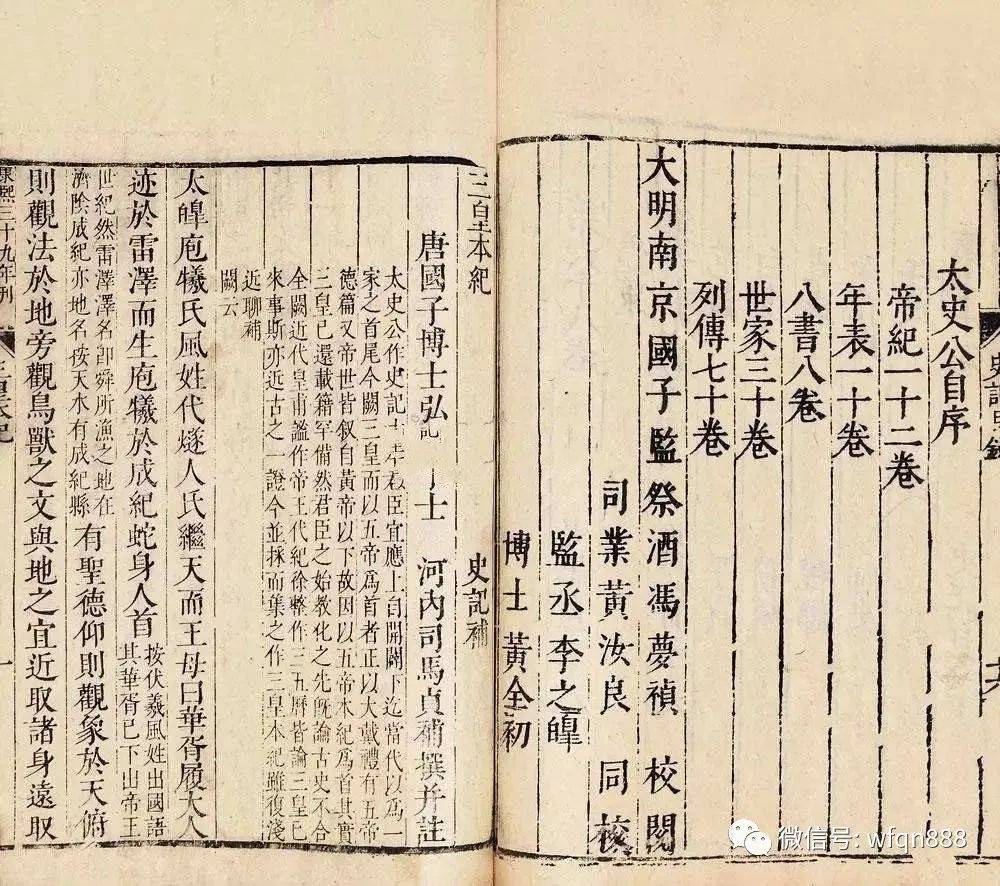 史記目錄
太史公自序
帝紀一十二卷
年表一十卷
八書八卷
世家三十卷
列傳七十卷
大明南京國子監祭酒馮夢禎 校閱
司業黃汝良 同校
監丞李之皥
博士黃全初
三皇本紀 史記補
唐國子博士弘 士 河內司馬貞補撰并註
太史公作史記 君臣宜應上自開闢下迄當代以爲一
家之首尾今闕三皇而以五帝爲首者正以大戴禮有五帝
德篇又帝世皆叙自黃帝以下故因以五帝本紀爲首其實
三皇已還載籍罕備然君臣之始教化之先旣論古史不合
全闕近代皇甫謐作帝王代紀徐整作三五曆皆論三皇已
來事斯亦近古之一證今並採而集之作三皇本紀雖復淺
近聊補
闕云
太皥庖犧氏風姓代燧人氏繼天而王母曰華胥履大人
迹於雷澤而生庖犧於成紀蛇身人首 按伏羲風姓出國語
其華胥已下出帝王
世紀然雷澤澤名卽舜所漁之地在
濟陰成紀亦地名按天水有成紀縣 有聖德仰則觀象於天俯
則觀法於地旁觀鳥獸之文與地之宜近取諸身遠取
康熙三十九年刊
三皇本紀
一
微信号: wfqn888